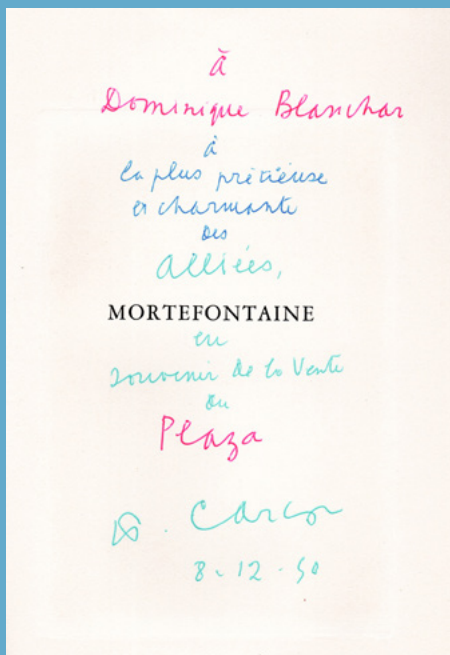 à
Dominique Blanchar
à
la plus précieuse
et charmante
des
Alliées,
MORTEFONTAINE
en
souvenir de la Vente
du
Plaza
F. Carco
8-12-50